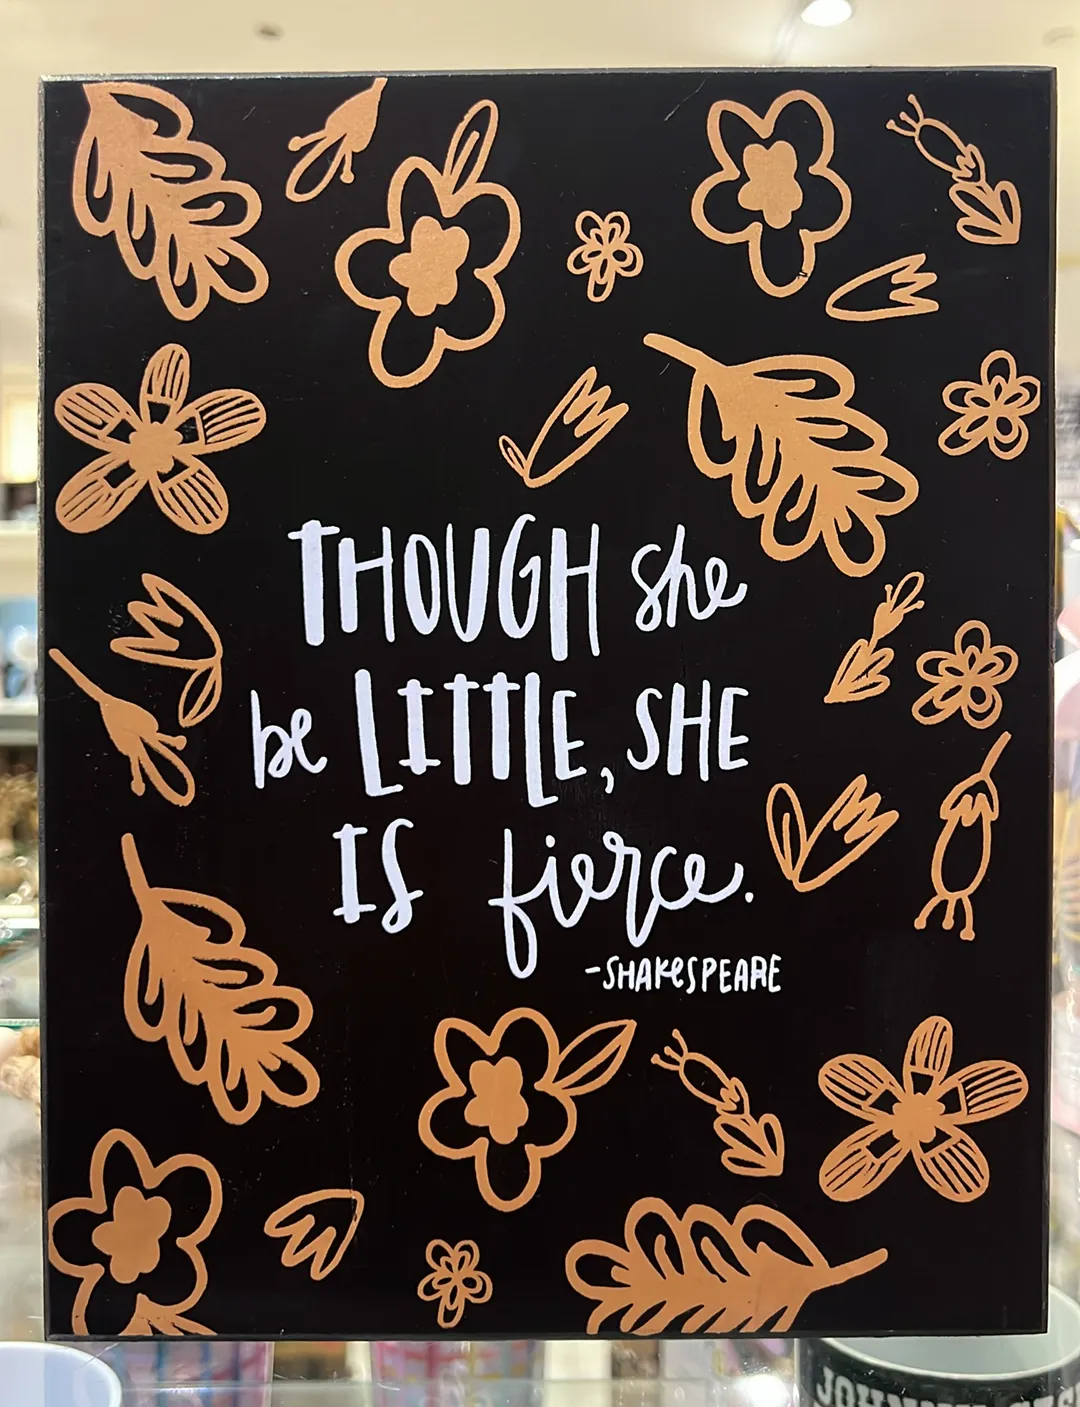 THOUGH she
be LITTLE, SHE
IS fierce.
-SHAKESPEARE